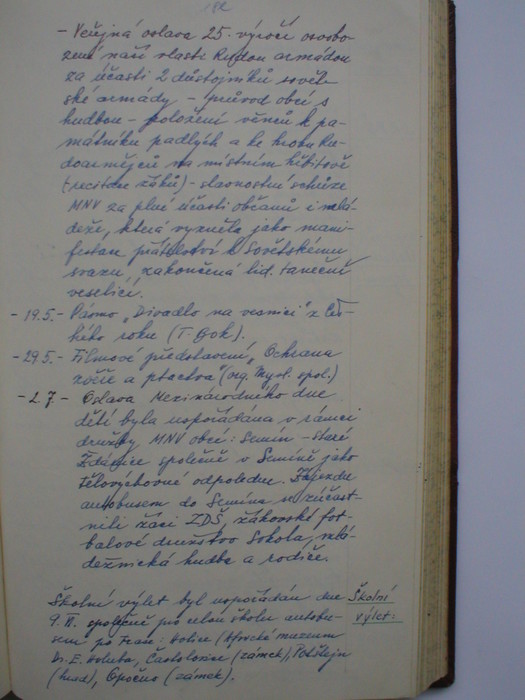 182
- Veřejná oslava 25. výročí osvobo-
zení naší vlasti Rudou armádou
za účasti 2 důstojníků sovět-
ské armády - průvod obcí s
hudbou - položení věnců k pa-
mátníku padlých a ke hrobu Ru-
doarmějců na místním hřbitově
(recitace žáků) - slavnostní schůze
MNV za plné účasti občanů i mlá-
deže, která vyzněla jako mani-
festace přátelství k Sovětskému
svazu, zakončená lid. taneční
veselicí.
- 19.5. - Pásmo "Divadlo na vesnici" z
hého roku (T. Bok).
- 29.5. - Filmové představení "Ochrana
zvěře a ptactva" (org. Mysl. spol.)
- 2.7. - Oslava Mezinárodního dne
dětí byla uspořádána v rámci
družby MNV obcí: Semín - Staré
Ždánice společně v Semíně jako
tělovýchovné odpoledne. Zájezdu
autobusem do Semína se zúčast-
nili žáci ZDŠ, žákovské fot-
balové družstvo Sokola, mlá-
dežnická hudba a rodiče.
Školní výlet byl uspořádán dne
9. VI. společně pro celou školu autobu-
sem po trase: Holice (Africké muzeum
Dr. E. Holuba, Častolovice (zámek), Potštejn
(hrad), Opočno (zámek).
Školní
výlet: